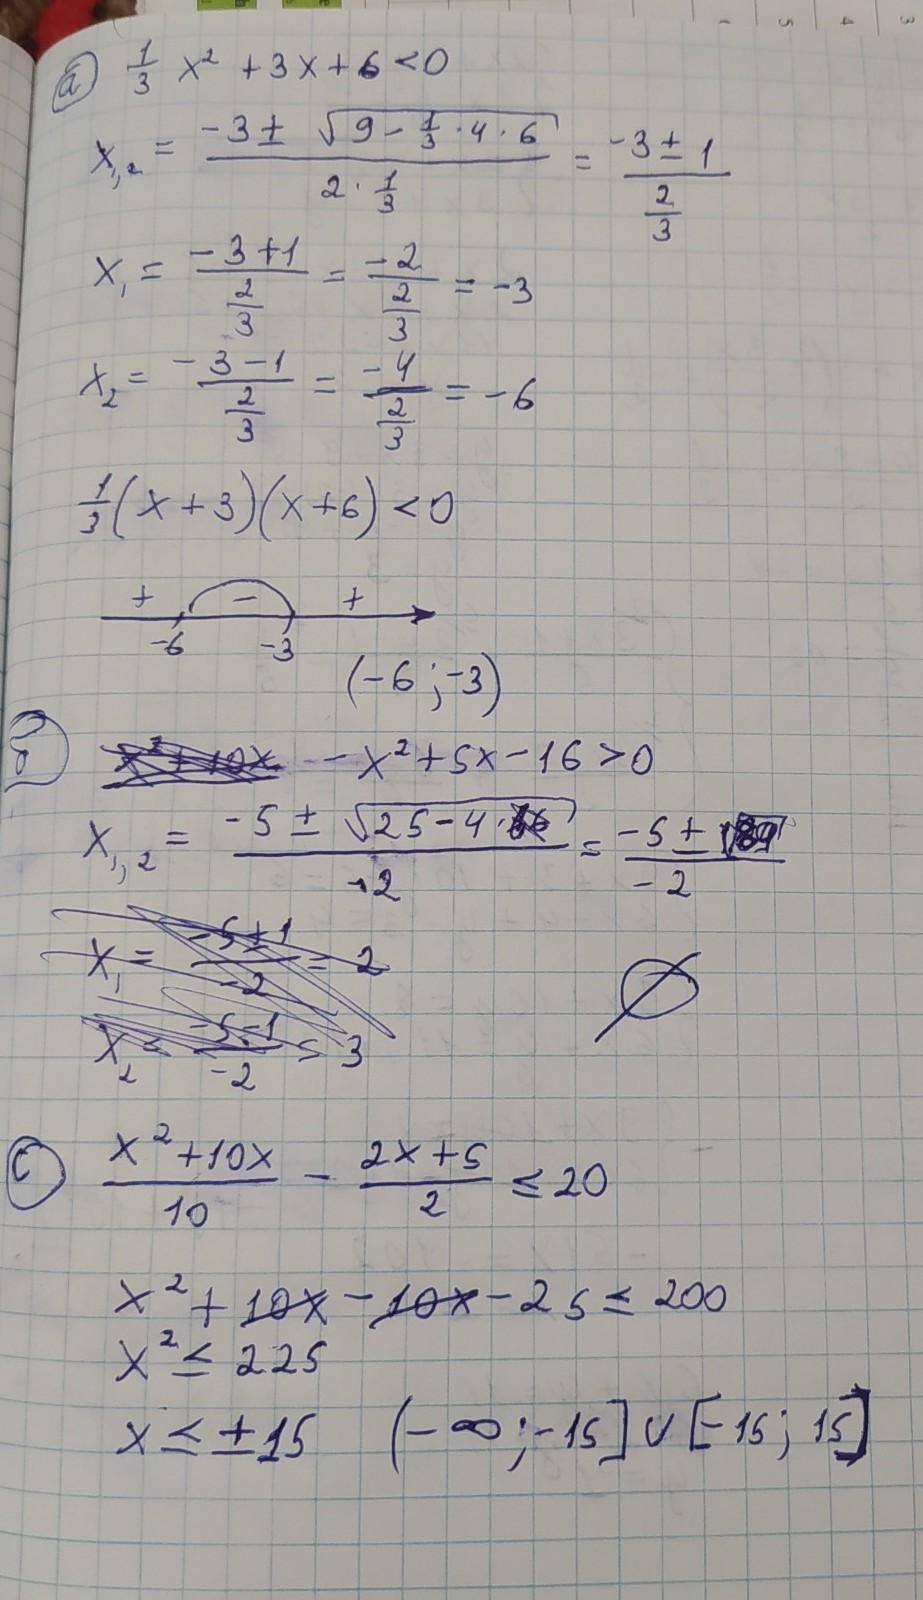 а) 1/3 x² + 3x + 6 < 0
x₁,₂ = (-3 ± √(9 - 1/3 · 4 · 6)) / (2 · 1/3) = (-3 ± 1) / (2/3)
x₁ = (-3 + 1) / (2/3) = -2 / (2/3) = -3
x₂ = (-3 - 1) / (2/3) = -4 / (2/3) = -6
1/3 (x + 3)(x + 6) < 0
+ - +
-6 -3
(-6 ; -3)
б) x² + 10x -x² + 5x - 16 > 0
x₁,₂ = (-5 ± √(25 - 4 · )) / -2 = (-5 ± ) / -2
x₁ = (-5 + 1) / -2 = 2
x₂ = (-5 - 1) / -2 = 3
∅
с) (x² + 10x) / 10 - (2x + 5) / 2 ≤ 20
x² + 10x - 10x - 25 ≤ 200
x² ≤ 225
x ≤ ±15 (-∞ ; -15] ∪ [-15 ; 15]